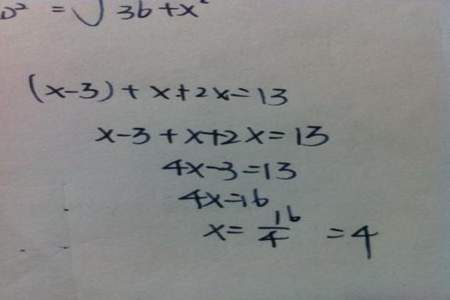 D² = √36+x²
(x-3)+x+2x=13
x-3+x+2x=13
4x-3=13
4x=16
x=16/4 =4